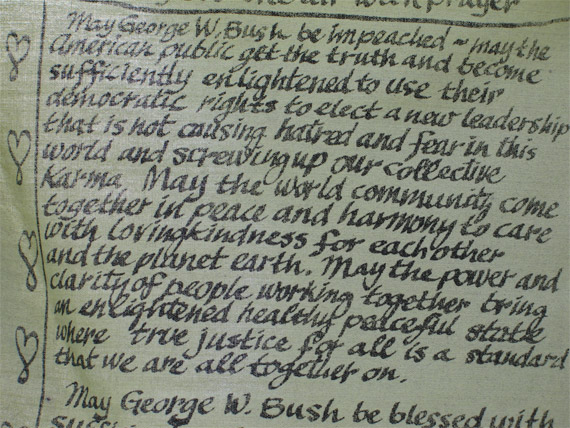 with prayer
May George W. Bush be impeached ~ may the
American public get the truth and become
sufficiently enlightened to use their
democratic rights to elect a new leadership
that is not causing hatred and fear in this
world and screwing up our collective
Karma. May the world community come
together in peace and harmony to care
with lovingkindness for each other
and the planet earth. May the power and
clarity of people working together bring
an enlightened healthy peaceful state
where true justice for all is a standard
that we are all together on.
May George W. Bush be blessed with